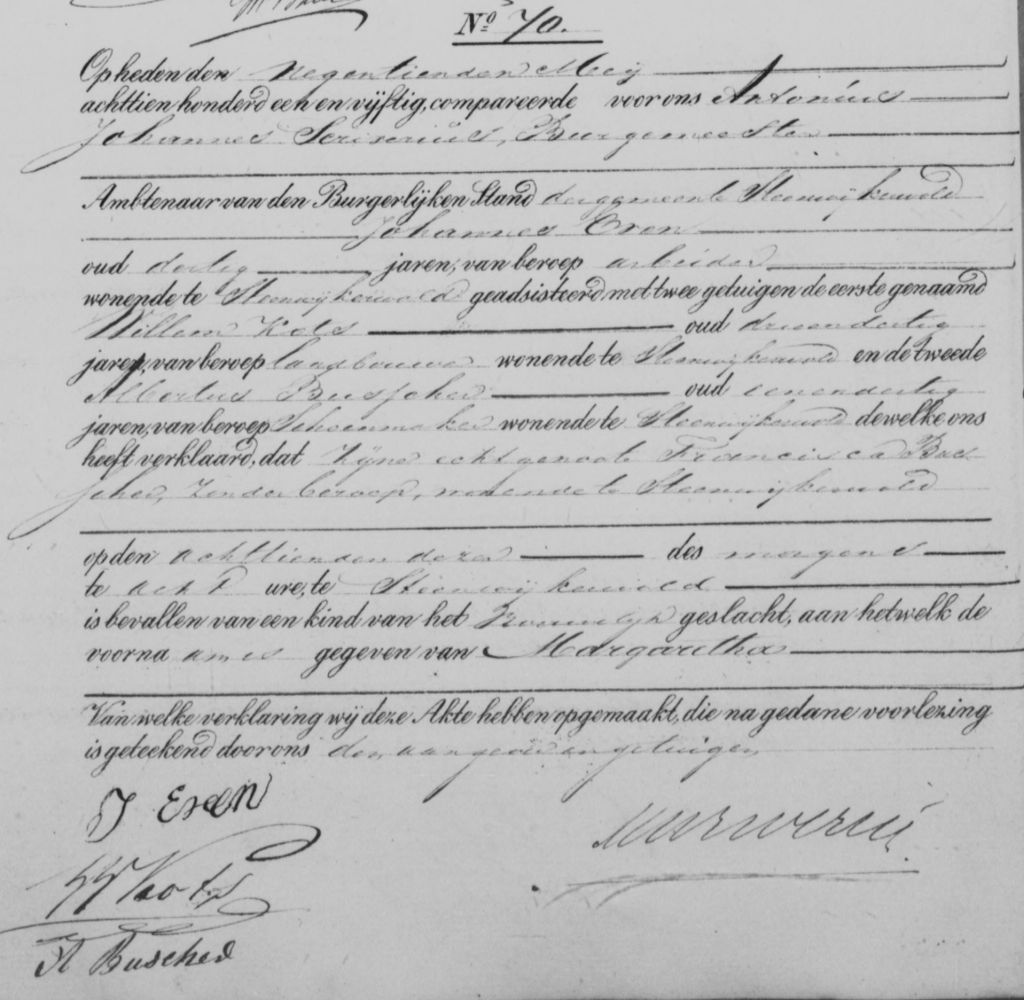 No 70.
Op heden den negentienden Meij
achttien honderd een en vijftig, compareerde voor ons Antonius
Johannes Burgemeester
Ambtenaar van den Burgerlijken Stand der gemeente Steenwijkerwold
Johannes Eren
oud dertig jaren, van beroep arbeider
wonende te Steenwijkerwold geadsisteerd met twee getuigen de eerste genaamd
Willem Kots oud drieendertig
jaren, van beroep landbouwer wonende te Steenwijkerwold en de tweede
Albertus Busscher oud eenendertig
jaren, van beroep Schoenmaker wonende te Steenwijkerwold dewelke ons
heeft verklaard, dat Zijne echtgenoote Francisca Bus
scher, Zonder beroep, wonende te Steenwijkerwold
op den achttienden dezer des morgens
te acht ure, te Steenwijkerwold
is bevallen van een kind van het Vrouwelijk geslacht, aan hetwelk de
voorna ames gegeven van Margaretha
Van welke verklaring wij deze Akte hebben opgemaakt, die na gedane voorlezing
is geteekend door ons den aangever en getuigen
J Eren
W Koots
A Buscher